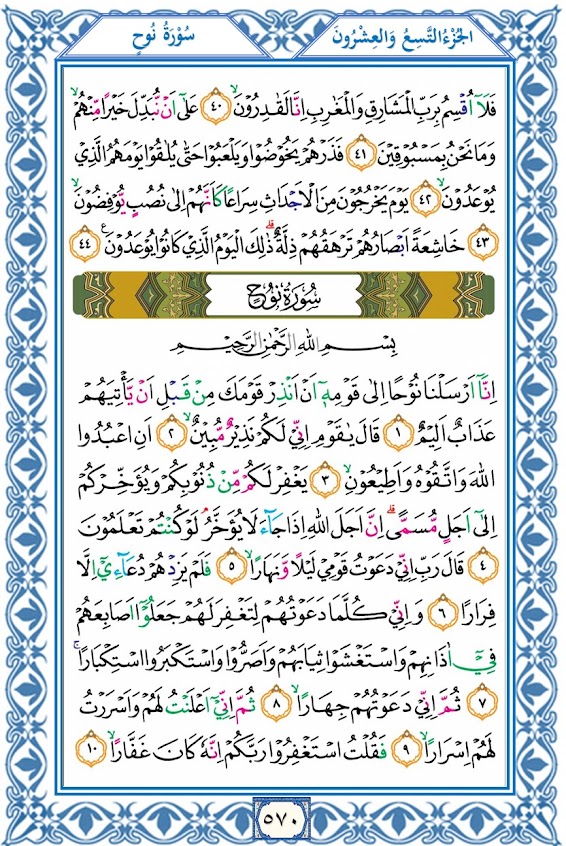 الجُزْءُ التَّسِعُ وَالعِشْرُونَ
سُوْرَةُ نُوحٍ
فَلَآ اُقْسِمُ بِرَبِّ الْمَشَارِقِ وَالْمَغٰرِبِ اِنَّا لَقٰدِرُوْنَۙ ٤٠ عَلٰٓى اَنْ نُّبَدِّلَ خَيْرًا مِّنْهُمْۙ
وَمَا نَحْنُ بِمَسْبُوْقِيْنَ ٤١ فَذَرْهُمْ يَخُوْضُوْا وَيَلْعَبُوْا حَتّٰى يُلٰقُوْا يَوْمَهُمُ الَّذِيْ
يُوْعَدُوْنَۙ ٤٢ يَوْمَ يَخْرُجُوْنَ مِنَ الْاَجْدَاثِ سِرَاعًا كَاَنَّهُمْ اِلٰى نُصُبٍ يُّوْفِضُوْنَۙ
٤٣ خَاشِعَةً اَبْصَارُهُمْ تَرْهَقُهُمْ ذِلَّةٌ ۗذٰلِكَ الْيَوْمُ الَّذِيْ كَانُوْا يُوْعَدُوْنَ ࣖ ٤٤
سُوْرَةُ نُوْحٍ
بِسْمِ اللّٰهِ الرَّحْمٰنِ الرَّحِيْمِ
اِنَّآ اَرْسَلْنَا نُوْحًا اِلٰى قَوْمِهٖٓ اَنْ اَنْذِرْ قَوْمَكَ مِنْ قَبْلِ اَنْ يَّأْتِيَهُمْ
عَذَابٌ اَلِيْمٌ ١ قَالَ يٰقَوْمِ اِنِّيْ لَكُمْ نَذِيْرٌ مُّبِيْنٌۙ ٢ اَنِ اعْبُدُوا
اللّٰهَ وَاتَّقُوْهُ وَاَطِيْعُوْنِۙ ٣ يَغْفِرْ لَكُمْ مِّنْ ذُنُوْبِكُمْ وَيُؤَخِّرْكُمْ
اِلٰٓى اَجَلٍ مُّسَمًّىۗ اِنَّ اَجَلَ اللّٰهِ اِذَا جَاۤءَ لَا يُؤَخَّرُۘ لَوْ كُنْتُمْ تَعْلَمُوْنَ
٤ قَالَ رَبِّ اِنِّيْ دَعَوْتُ قَوْمِيْ لَيْلًا وَّنَهَارًاۙ ٥ فَلَمْ يَزِدْهُمْ دُعَاۤءِيْٓ اِلَّا
فِرَارًا ٦ وَاِنِّيْ كُلَّمَا دَعَوْتُهُمْ لِتَغْفِرَ لَهُمْ جَعَلُوْٓا اَصَابِعَهُمْ
فِيْٓ اٰذَانِهِمْ وَاسْتَغْشَوْا ثِيَابَهُمْ وَاَصَرُّوْا وَاسْتَكْبَرُوا اسْتِكْبَارًاۚ
٧ ثُمَّ اِنِّيْ دَعَوْتُهُمْ جِهَارًاۙ ٨ ثُمَّ اِنِّيْٓ اَعْلَنْتُ لَهُمْ وَاَسْرَرْتُ
لَهُمْ اِسْرَارًاۙ ٩ فَقُلْتُ اسْتَغْفِرُوْا رَبَّكُمْ اِنَّهٗ كَانَ غَفَّارًاۙ ١٠
٥٧٠